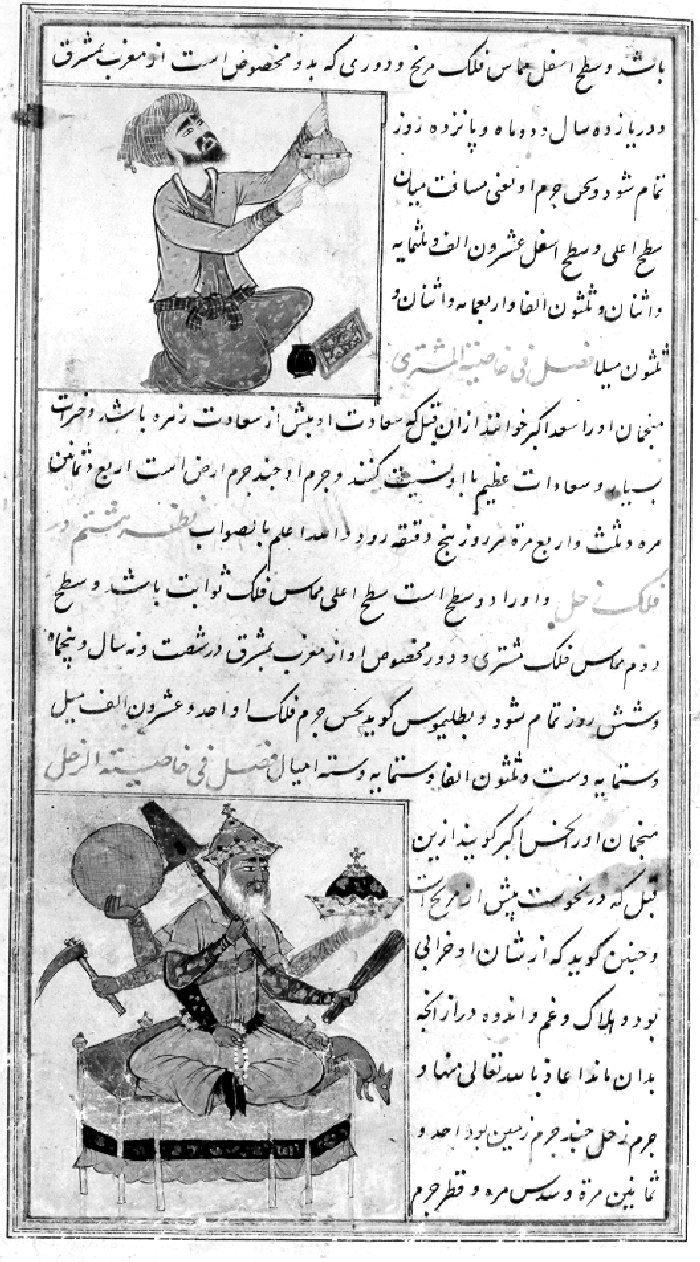 باشد و سطح اسفل مماس فلک مریخ و دوری که بدو مخصوص است از مغرب بمشرق
و در یازده سال و دو ماه و پانزده روز
تمام شود و نحن جرم او یعنی مسافت میان
سطح اعلی و سطح اسفل عشرون الف و ثلثمایه
و اثنان و ثلثون الفا و اربعمایه و اثنان و
ثلثون میلا فصل فی خاصیة المشتری
منجمان او را سعد اکبر خوانند از ان قبل که سعادت او بیش از سعادت زهره باشد و خیرات
بسیار و سعادات عظیم با او نسبت کنند و جرم او چند جرم ارض است اربع و ثمانین
مره و ثلث و اربع مرة هر روز پنج دقیقه رود والله اعلم بالصواب نظر هشتم در
فلک زحل و او را دو سطح است سطح اعلی مماس فلک ثوابت باشد و سطح
دوم مماس فلک مشتری و دور مخصوص او از مغرب بمشرق در شصت و نه سال و پنجاه
و شش روز تمام شود و بطلیموس کوید نحن جرم فلک او احد و عشرون الف میل
و ستمایه و ست و ثلثون الفا و ستمایه و سته امیال فصل فی خاصیته الزحل
منجمان او را نحس اکبر کویند ازین
قبل که در نحوست بیش از مریخ است
و چنین کوید که از شان او خرابی
بود و هلاک و غم و اندوه در از انچه
بدان ماند اعاذ بالله تعالی منها و
جرم زحل چند جرم زمین بود احد و
ثمانین مرة و سدس مره و قطر جرم